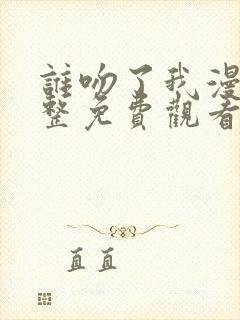 誰吻了我漫
整免費觀看
直直